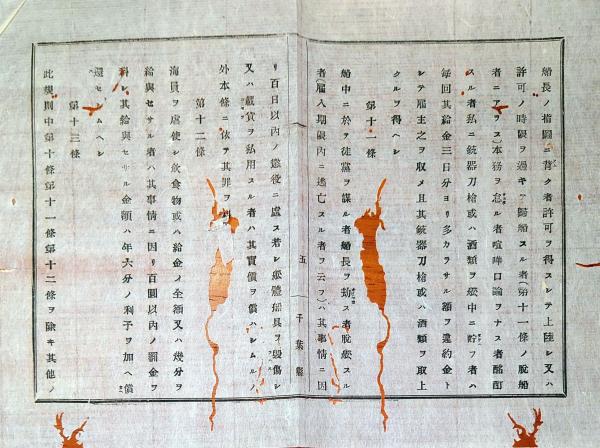 船長ノ指圖ニ背ク者許可ヲ得スシテ上陸シ又ハ
許可ノ時限ヲ過キテ歸船スル者(第十一條ノ脫船
者ニアラス)本務ヲ怠ル者喧嘩口論ヲナス者酩酊
スル者私ニ銃器刀槍或ハ酒類ヲ船中ニ貯フ者ハ
每回其給金三日分ヨリ多カラサル額ヲ違約金ト
シテ雇主之ヲ取メ且其銃器刀槍或ハ酒類ヲ取上
クルヲ得ヘシ
第十一條
船中ニ於テ徒黨ヲ謀ル者船長ヲ劫ス者脫船スル
者(雇入期限內ニ逃亡スル者ヲ云フ)ハ其事情ニ因
五
千葉縣
リ百日以內ノ懲役ニ處ス若シ船體船具ヲ毀傷シ
又ハ載貨ヲ私用スル者ハ其實價ヲ償ハシムルノ
外本條ニ依テ其罪ヲ
第十二條
海員ヲ虐使シ飮食物或ハ給金ノ全額又ハ幾分ヲ
給與セサル者ハ其事情ニ因リ百圓以內ノ罰金ヲ
科シ其給與セサル金額ハ年六分ノ利子ヲ加ヘ償
還セシムヘシ
第十三條
此規則中第十條第十一條第十二條ヲ除キ其他ノ